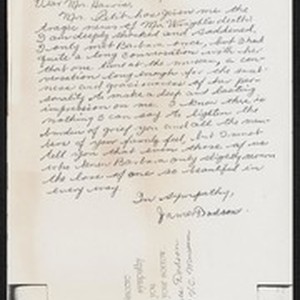 Dear Mr. Garvie,
Mr. Petit has given me the
tragic news of Mr Wright's death.
I am deeply shocked and saddened.
I only met Barbara once, but I had
quite a long conversation with her
that one time at the museum, a con-
versation long enough for the sweet-
ness and graciousness of her per-
sonality to make a deep and lasting
impression on me. I know there is
nothing I can say to lighten the
burden of grief you and all the mem-
bers of your family feel, but I must
tell you that even those of us
who knew Barbara only slightly mourn
the loss of one so beautiful in
every way.
In sympathy,
James Dodson
Dodson
V.C. Museum